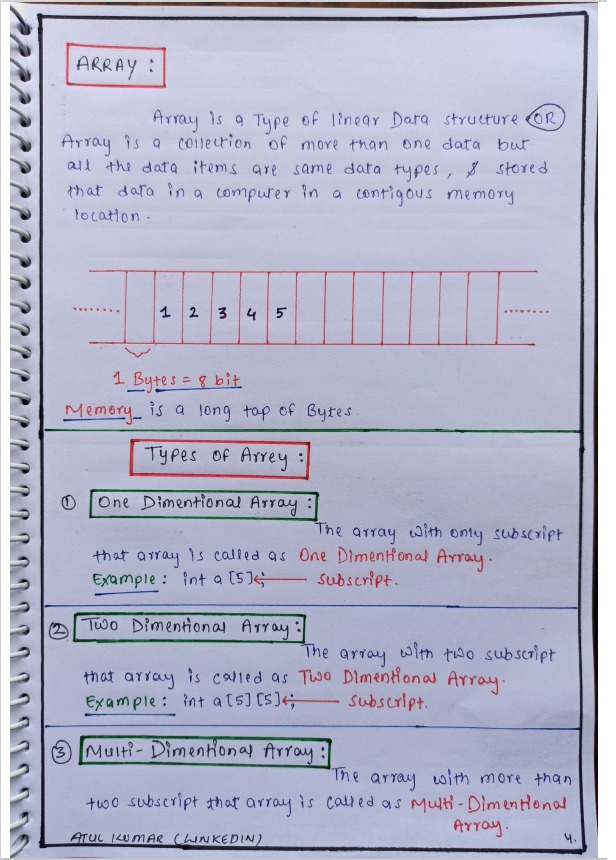 ARRAY :
Array is a Type of linear Data structure OR
Array is a collection of more than one data but
all the data items are same data types, & stored
that data in a computer in a contigous memory
location.
........ 1 2 3 4 5 ........
1 Bytes = 8 bit
Memory is a long tap of Bytes.
Types of Arrey :
① One Dimentional Array :
The array with only subscript
that array is called as One Dimentional Array.
Example : int a[5]; ← subscript.
② Two Dimentional Array :
The array with two subscript
that array is called as Two Dimentional Array.
Example : int a[5][5]; ← subscript.
③ Multi-Dimentional Array :
The array with more than
two subscript that array is called as Multi-Dimentional
Array.
ATUL KUMAR (LINKEDIN) 4.